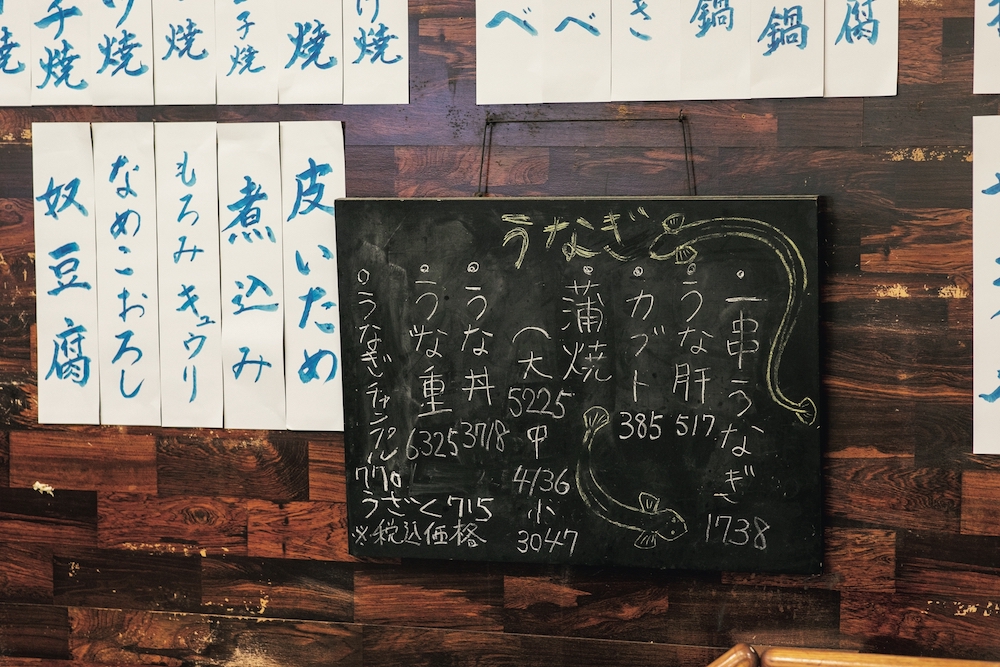 焼
子焼
焼
焼
子焼
焼
け焼
べ
べ
き
鍋
鍋
腐
皮いため
煮込み
もろみキュウリ
なめこおろし
奴豆腐
うなぎ
一串うなぎ
1738
うな肝
517
カブト
385
蒲焼
(大
5225
中
4136
小
3047
うな丼
3718
うな重
6325
うなぎチャンプル
770
うざく715
※税込価格